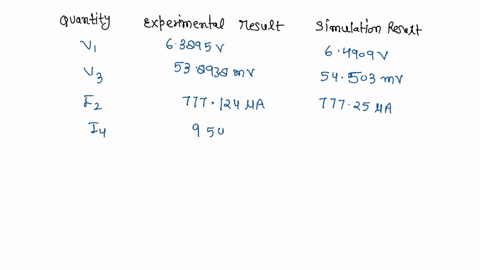 Quantity Experimental Result Simulation Result
V1 6.3895 V 6.4909 V
V3 53.8938 mV 54.503 mV
I2 777.124 μA 777.25 μA
I4 950